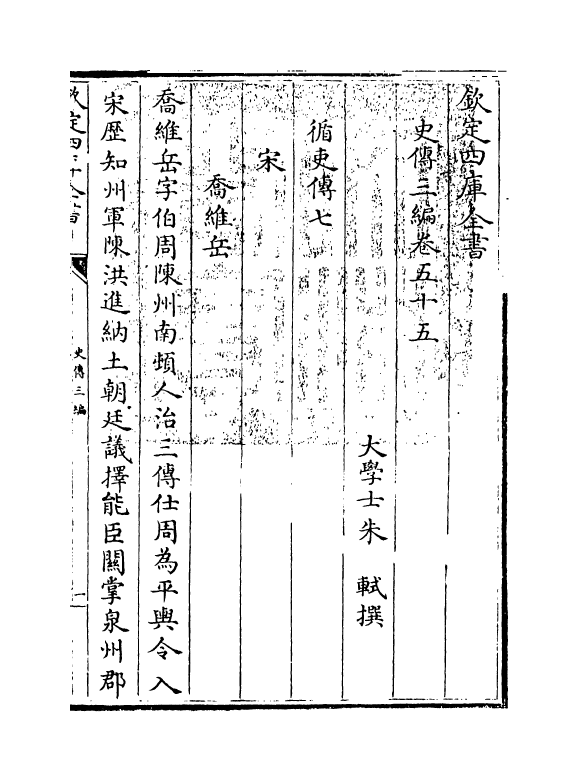 欽定四庫全書
史傳三編卷五十五
大學士朱　軾撰
循吏傳七
宋
喬維岳
喬維岳字伯周陳州南頓人治三傳仕周為平輿令入
宋歴知州軍陳洪進納土朝廷議擇能臣關掌泉州郡
欽定四庫全書
史傳三編
一